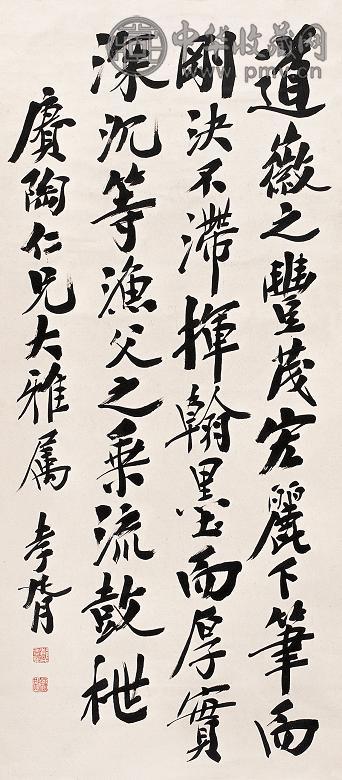 道徽之豐茂宏麗下筆而
剛決不滯揮翰墨而厚實
深沉等漁父之乘流鼓枻
賡陶仁兄大雅属 孝胥
中华收藏网